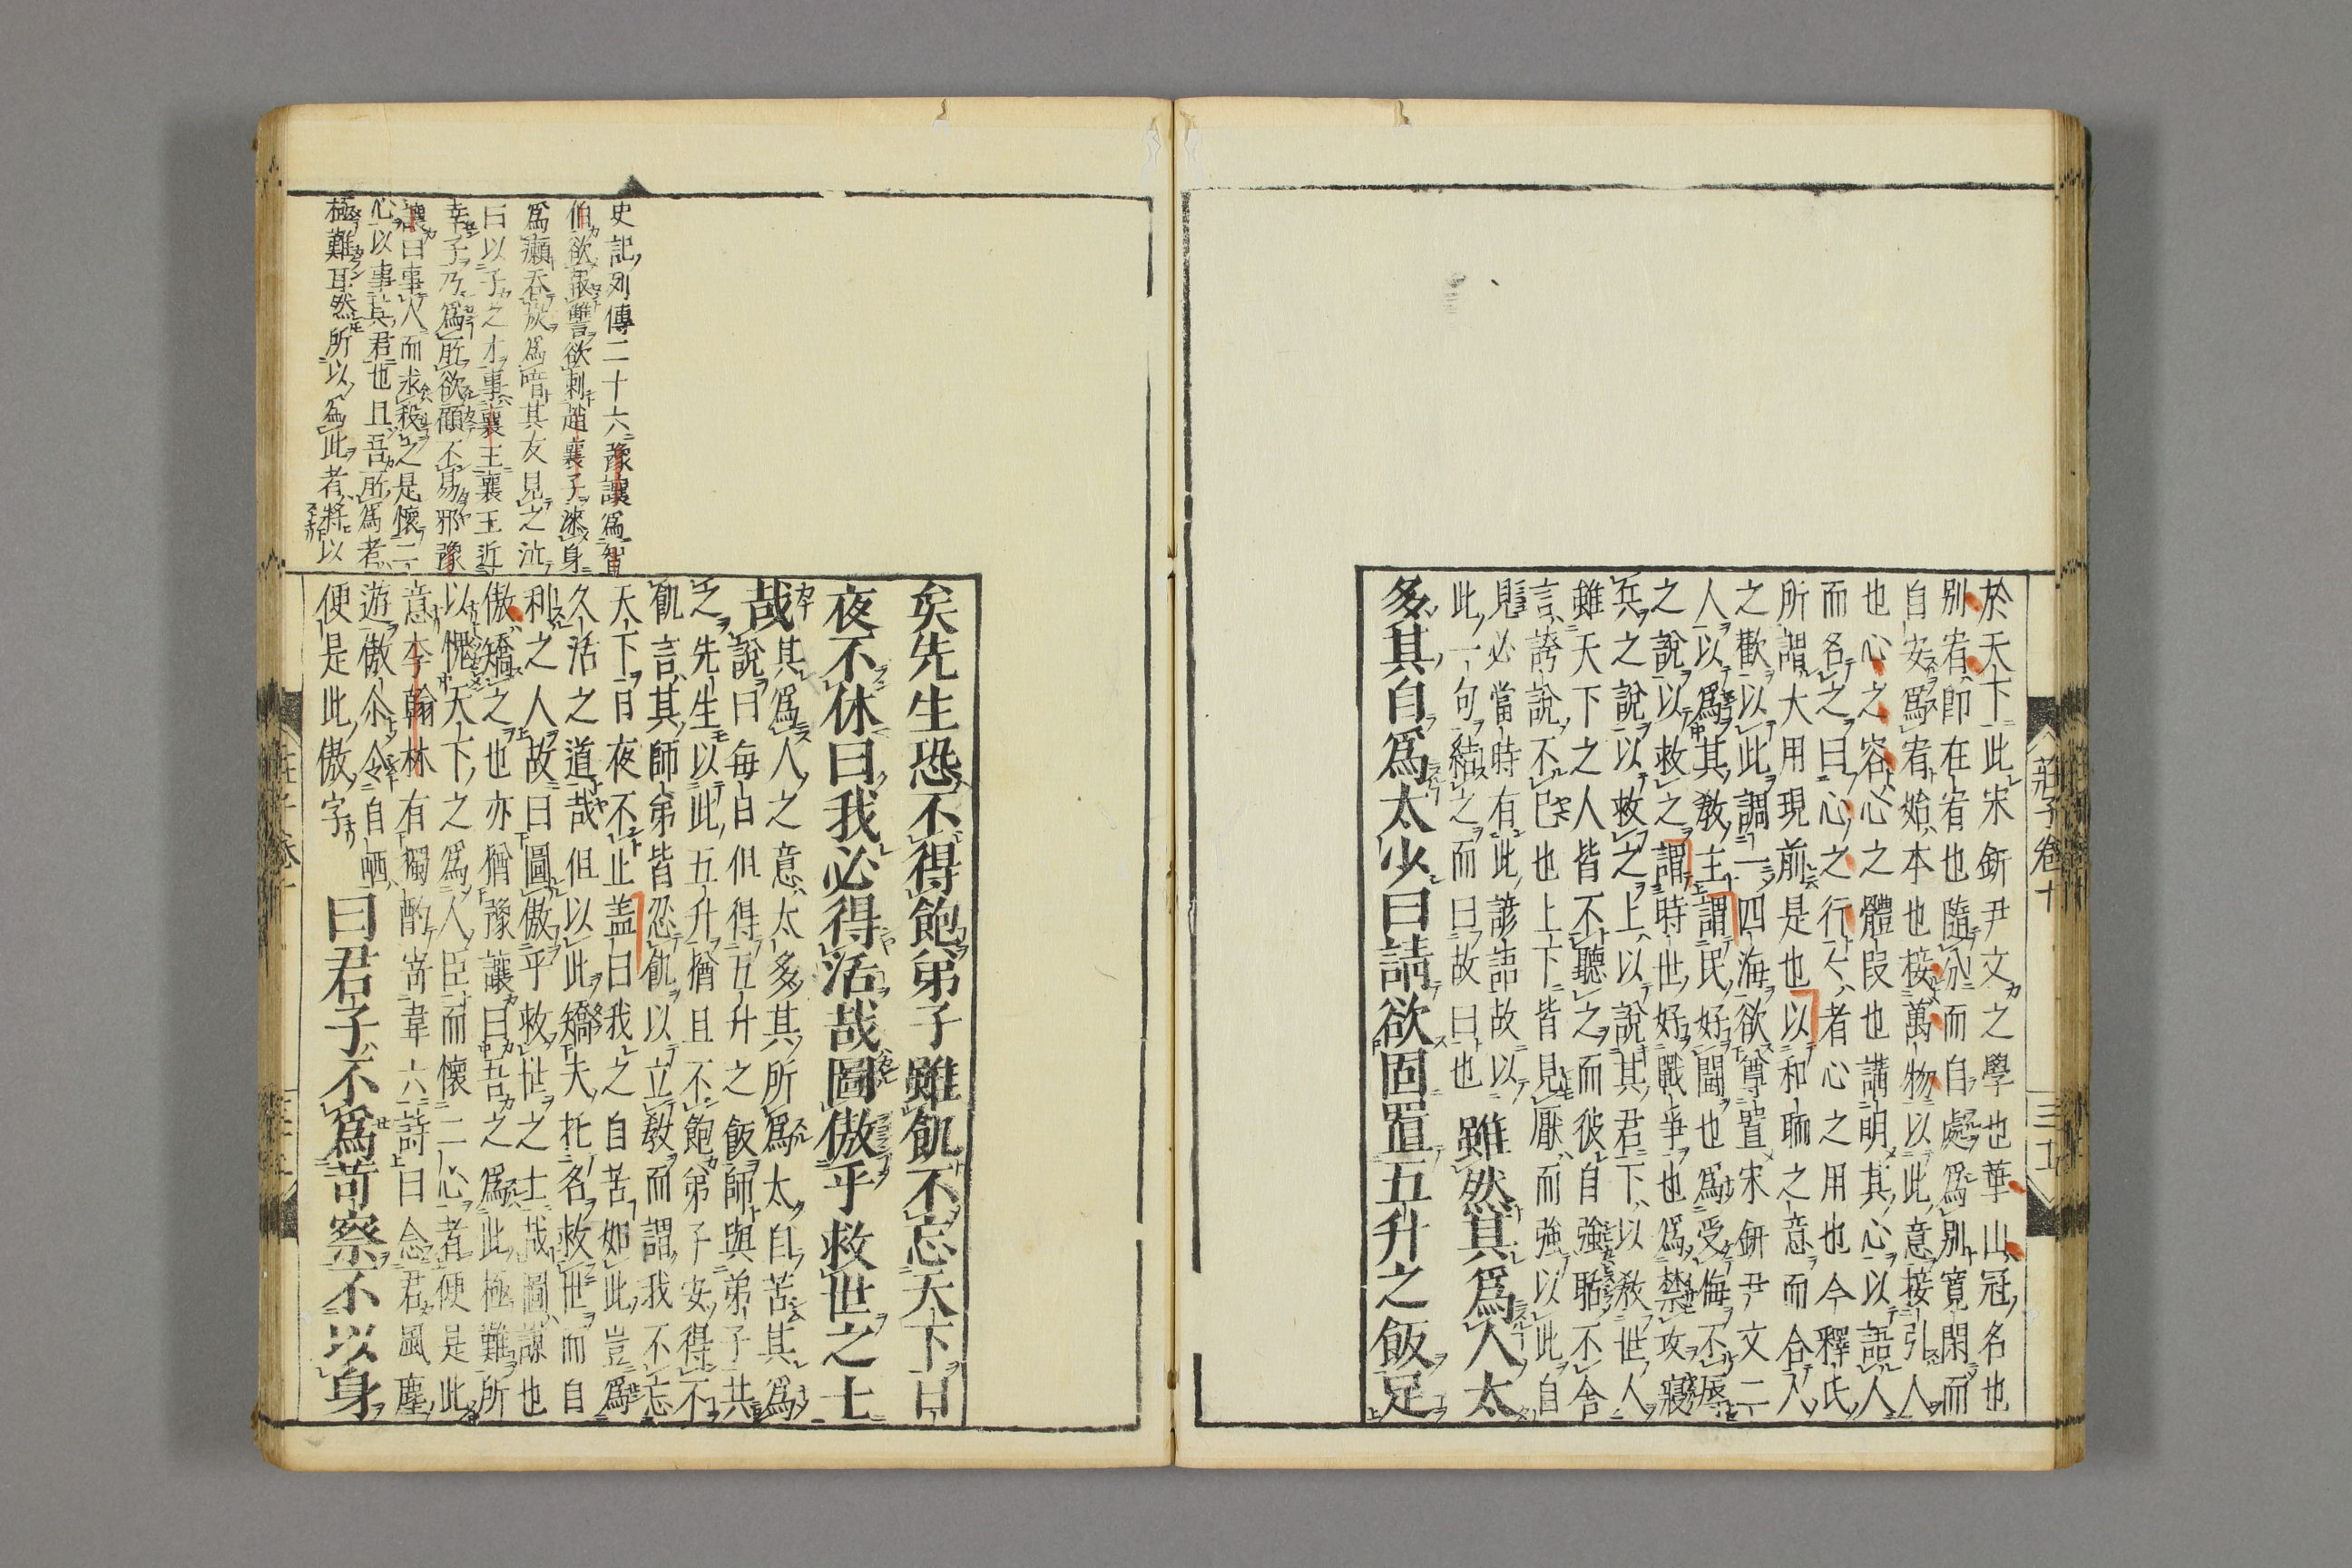 於天下此宋鈃尹文之學也華山冠名也
別宥即在宥也隨分而自處爲別寬閑而
自安爲宥始本也接萬物以此意接引人
也心之容心之體段也講明其心以語人
而名之曰心之行行者心之用也今釋氏
所謂大用現前是也以和聏之意而合人
之歡以此調一四海欲尊置宋鈃尹文二
人以爲其敎主謂民好鬪也爲受侮不辱
之說以救之謂時世好戰爭也爲禁攻寢
兵之說以救之上以說其君下以敎世人
雖天下之人皆不聽之而彼自強聒不舍
言誇說不已也上下皆見厭而強以此自
見必當時有此諺語故以
此一句結之而曰故曰也
雖然其爲人太
多其自爲太少曰請欲固置五升之飯足
莊子卷十
三十五
史記列傳二十六豫讓爲智
伯欲報讐欲刺趙襄子漆身
爲癩吞炭爲喑其友見之泣
曰以子之才事襄王襄王近
幸子乃爲所欲顧不易邪豫
讓曰事人而求殺之是懷二
心以事其君也且吾所爲者
極難耳然所以爲此者將以
矣先生恐不得飽弟子雖飢不忘天下日
夜不休曰我必得活哉圖傲乎救世之士
哉
其爲人之意太多其所爲太自苦其爲
說曰每日但得五升之飯師與弟子共
之先生以此五升猶且不飽弟子安得不
飢言其師弟皆忍飢以立敎而謂我不忘
天下日夜不止蓋曰我之自苦如此豈爲
久活之道哉但以此矯夫托名救世而自
利之人故曰圖傲乎救世之士哉圖謀也
傲矯之也亦猶豫讓曰吾之爲此極難所
以愧天下之爲人臣而懷二心者便是此
意李翰林有獨酌寄韋六詩曰念君風塵
遊傲尒令自哂
便是此傲字
曰君子不爲苛察不以身